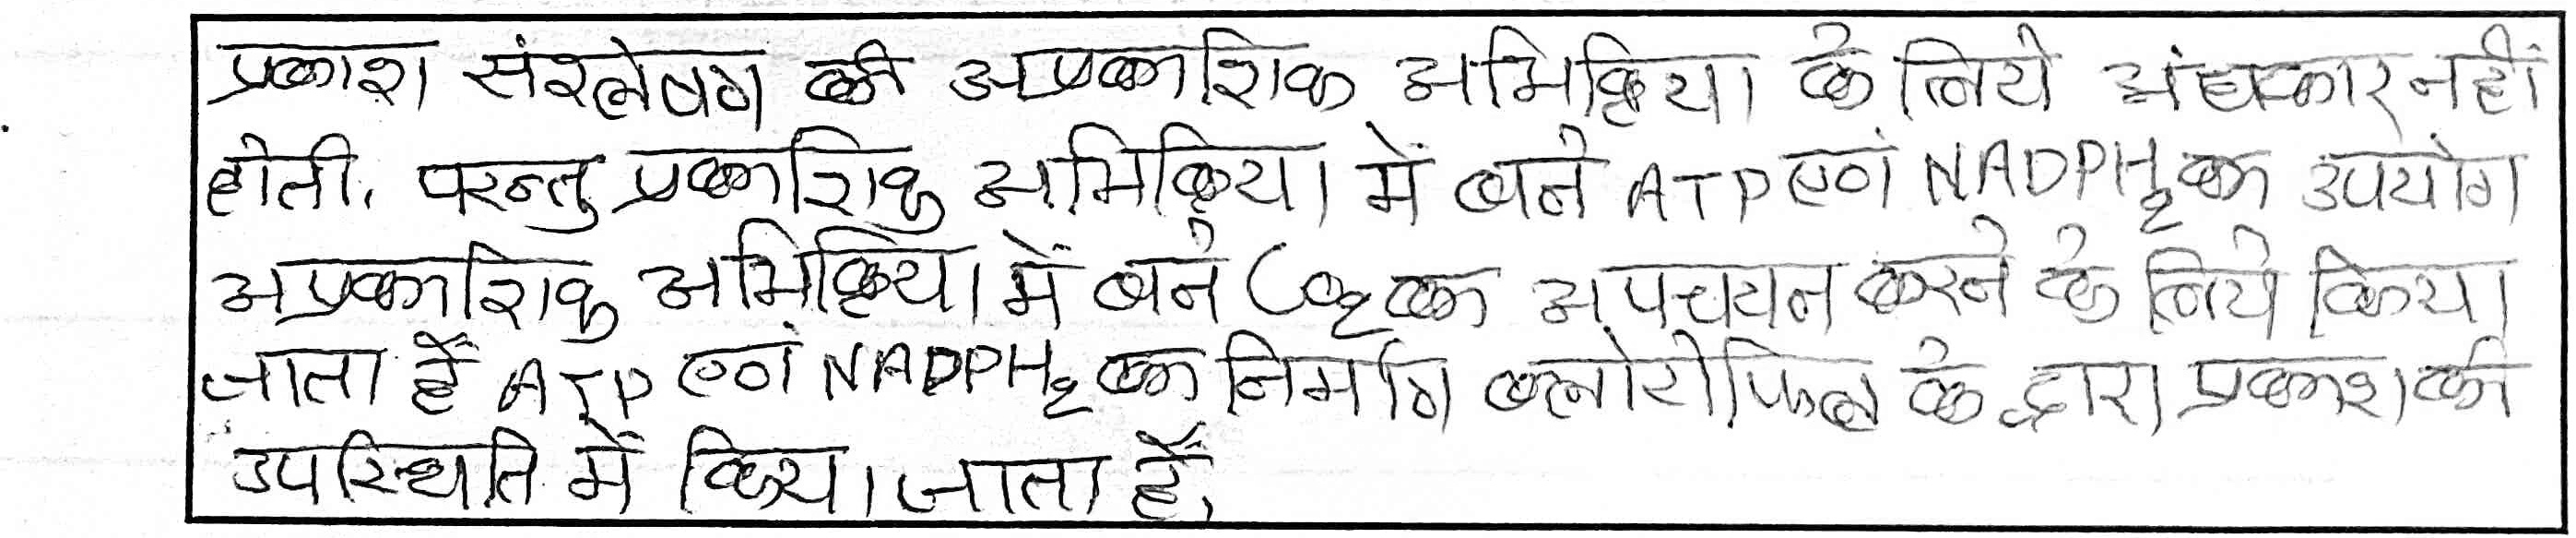 प्रकाश संश्लेषण की अप्रकाशिक अभिक्रिया के लिये अंधकार नहीं
होती, परन्तु प्रकाशिक अभिक्रिया में बने ATP एवं NADPH₂ का उपयोग
अप्रकाशिक अभिक्रिया में बने CO₂ का अपचयन करने के लिये किया
जाता हैं ATP एवं NADPH₂ का निर्माण क्लोरोफिल के द्वारा प्रकाश की
उपस्थिति में किया जाता हैं,